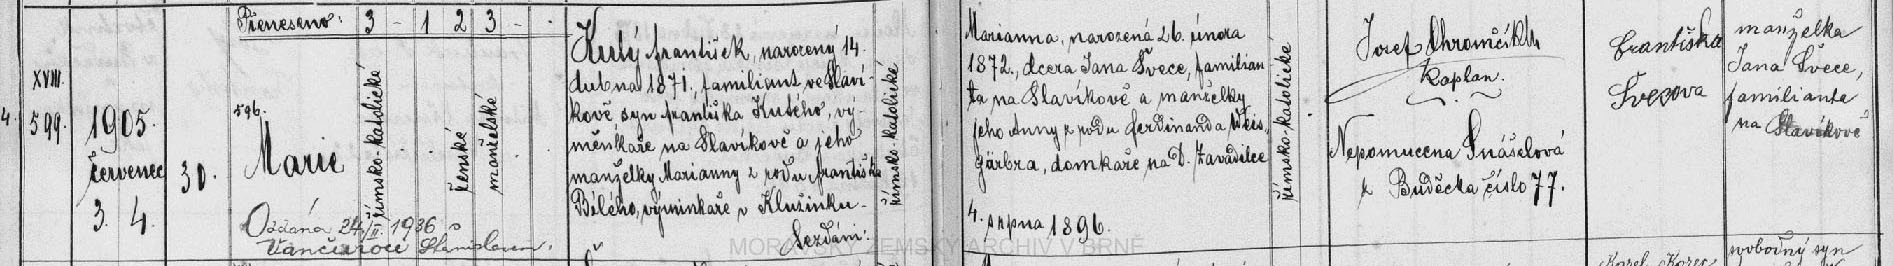 Přeneseno: 3 - 1 2 3 - .
4.
XVIII.
599.
1905.
červenec
3. 4.
30.
596.
Marie
Oddána 24/II. 1936
Stanislavem.
římsko-katolické
ženské
manželské
Kutý František, narozený 14.
dubna 1871., familiant ve Slaví-
kově syn Františka Kutého, vý
měnkaře na Slavíkově a jeho
manželky Marianny z rodu Františka
Bílého, výminkaře v Klužínku.
Sezdáni:
římsko-katolické
Marianna, narozená 26. února
1872., dcera Jana Švece, familian
ta na Slavíkově a manželky
jeho Anny z rodu Ferdinanda Weis-
gärbra, domkaře na D.
4. srpna 1896.
římsko-katolické
Josef
Kaplan.
Nepomucena Snášelová
z Buděcka číslo 77.
Františka
Švecova
manželka
Jana Švece,
familianta
na Slavíkově
Karel
svobodný syn
MORAVSKÝ ZEMSKÝ ARCHIV V BRNĚ